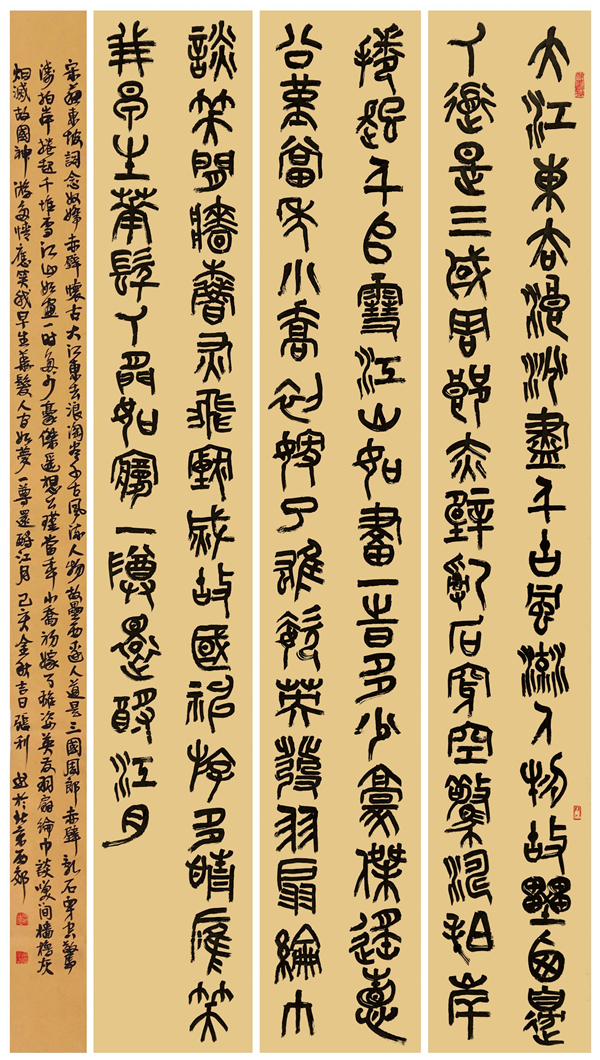 大江東去浪淘盡千古風流人物故壘西邊
人道是三國周郎赤壁亂石穿空驚濤拍岸
捲起千堆雪江山如畫一時多少豪傑遙想
公瑾當年小喬初嫁了雄姿英發羽扇綸巾
談笑間檣櫓灰飛煙滅故國神游多情應笑
我早生華髮人間如夢一尊還酹江月
宋蘇東坡詞念奴嬌赤壁懷古大江東去浪淘盡千古風流人物故壘西邊人道是三國周郎赤壁亂石穿空驚
濤拍岸捲起千堆雪江山如畫一時多少豪傑遙想公瑾當年小喬初嫁了雄姿英發羽扇綸巾談笑间檣櫓灰
烟滅故國神游多情應笑我早生華髮人间如夢一尊還酹江月 己亥金秋吉日張利 書於北京西郊